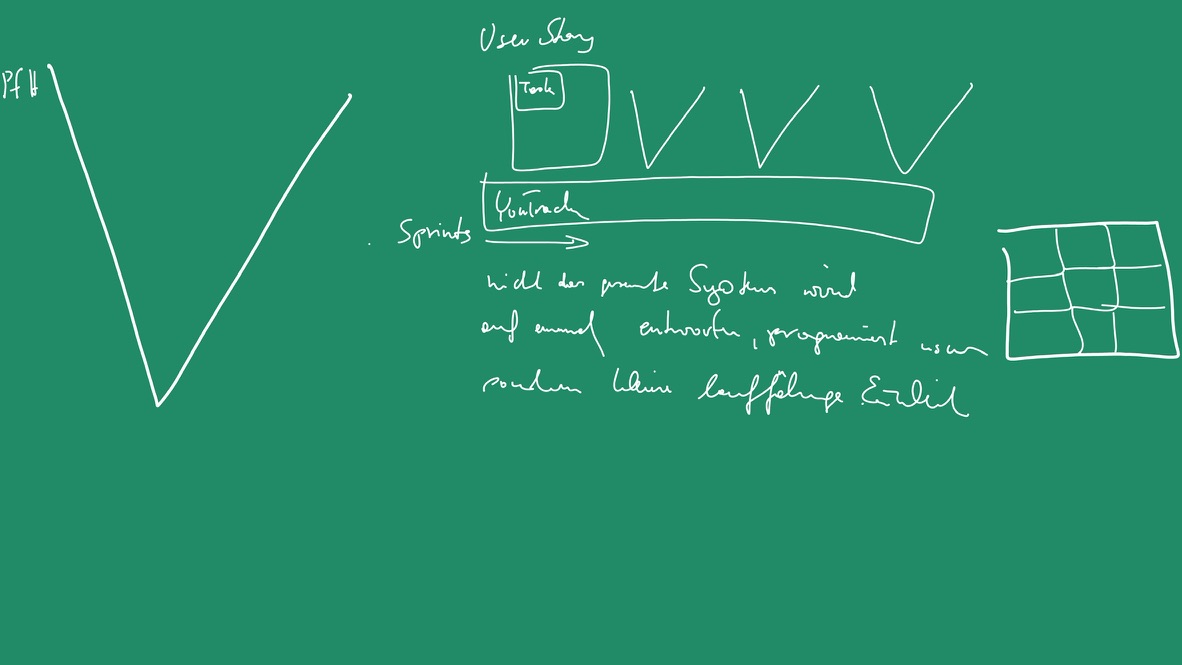 PfH
User Story
Task
YouTrack
Sprints
nicht das gesamte System wird
auf einmal entworfen, programmiert usw
sondern kleine lauffähige Einheit